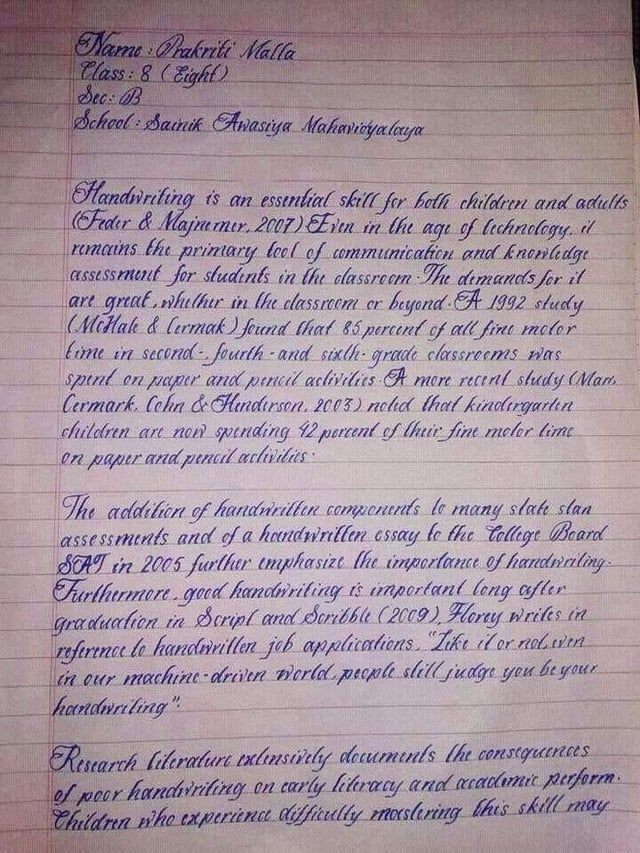 Name : Prakriti Malla
Class : 8 (Eight)
Sec : B
School : Sainik Awasiya Mahavidyalaya
Handwriting is an essential skill for both children and adults
(Feder & Majnemer, 2007) Even in the age of technology, it
remains the primary tool of communication and knowledge
assessment for students in the classroom. The demands for it
are great, whether in the classroom or beyond. A 1992 study
(McHale & Cermak) found that 85 percent of all fine motor
time in second-, fourth- and sixth- grade classrooms was
spent on paper and pencil activities. A more recent study (Marr,
Cermark, Cohn & Henderson, 2003) noted that kindergarten
children are now spending 42 percent of their fine motor time
on paper and pencil activities.
The addition of handwritten components to many state stan
assessments and of a handwritten essay to the College Board
SAT in 2005 further emphasize the importance of handwriting.
Furthermore, good handwriting is important long after
graduation in Script and Scribble (2009), Florey writes in
reference to handwritten job applications, "Like it or not, even
in our machine-driven world, people still judge you be your
handwriting".
Research literature extensively documents the consequences
of poor handwriting on early literacy and academic perform.
Children who experience difficulty mastering this skill may